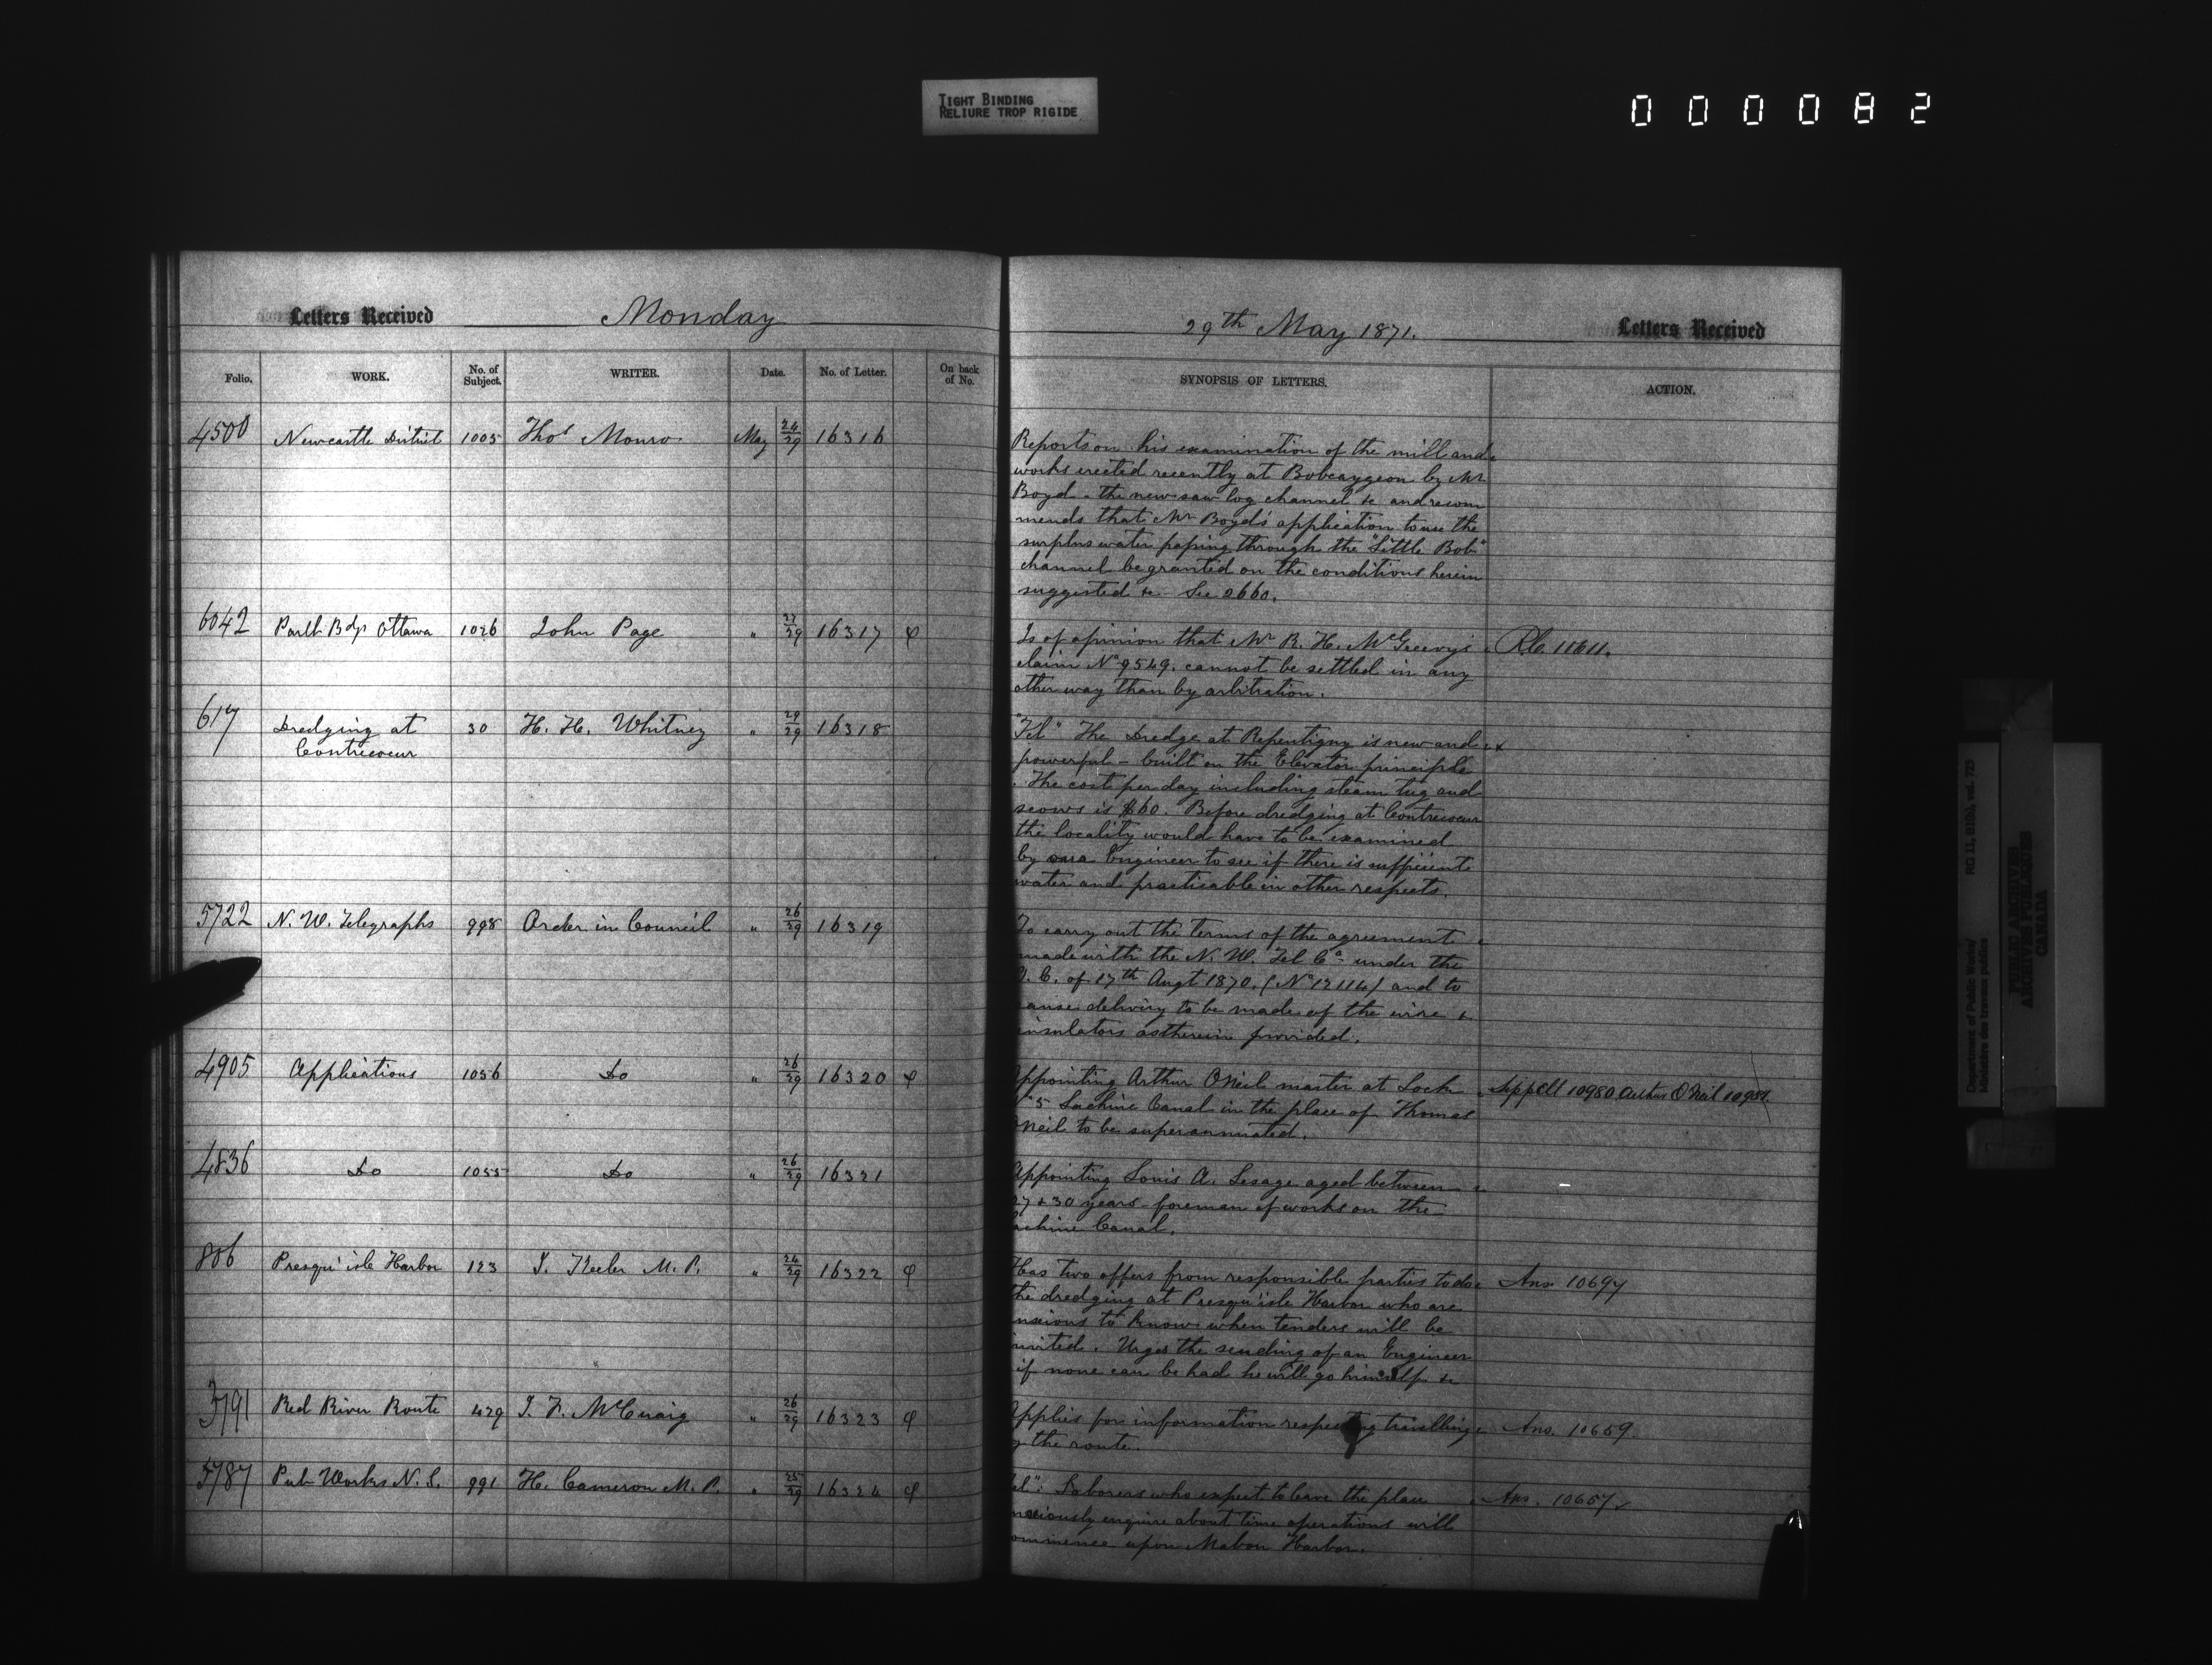 TIGHT BINDING
RELIURE TROP RIGIDE
000082
Letters Received Monday
Folio. WORK. No. of Subject. WRITER. Date. No. of Letter. On back of No.
4500 Newcastle District 1005 Thos Monro May 24/29 16316
6042 Parlt Bdgs Ottawa 1026 John Page " 27/29 16317 φ
617 Dredging at 30 H. H. Whitney " 29/29 16318
Contrecoeur
5722 N. W. Telegraphs 998 Order in Council " 26/29 16319
4905 Applications 1056 Do " 26/29 16320 φ
4836 Do 1055 Do " 26/29 16321
806 Presqu'isle Harbor 123 J. Keeler M. P. " 24/29 16322 φ
3791 Red River Route 429 J. F. McCuaig " 26/29 16323 φ
5787 Pub Works N. S. 991 H. Cameron M. P. " 25/29 16324 φ
29th May 1871. Letters Received
SYNOPSIS OF LETTERS. ACTION.
Reports on his examination of the mill and
works erected recently at Bobcaygeon by Mr
Boyd - the new saw log channel &c and recom
mends that Mr Boyd's application to use the
surplus water passing through the "Little Bob"
channel be granted on the conditions herein
suggested &c See 2660.
Is of opinion that Mr R. H. McGreevy's R.C. 11611.
claim No 9549. cannot be settled in any
other way than by arbitration.
"Tel" The Dredge at Repentigny is new and
powerful - built on the Elevator principle
. The cost per day including steam tug and
scows is $60. Before dredging at Contrecoeur
the locality would have to be examined
by an Engineer to see if there is sufficient
water and practicable in other respects.
To carry out the terms of the agreement
made with the N. W. Tel Co. under the
O. C. of 17th Augt 1870. (No 12114) and to
cause delivery to be made of the wire &
insulators as therein provided.
Appointing Arthur ONeil master at Lock Sippell 10980 Arthur O'Neil 10981
No 5 Lachine Canal in the place of Thomas
ONeil to be superannuated.
Appointing Louis A. Lesage aged between
27 & 30 years - foreman of works on the
Lachine Canal.
Has two offers from responsible parties to do Ans 10697
the dredging at Presqu'isle Harbor who are
anxious to know when tenders will be
invited. Urges the sending of an Engineer
if none can be had he will go himself &c
Applies for information respecting travelling Ans. 10659
by the route.
Tel": Laborers who expect to leave the place Ans. 10657
anxiously enquire about time operations will
commence upon Mabou Harbor.
Department of Public Works/ RG 11, B1(b), vol. 725
Ministère des travaux publics
PUBLIC ARCHIVES
ARCHIVES PUBLIQUES
CANADA